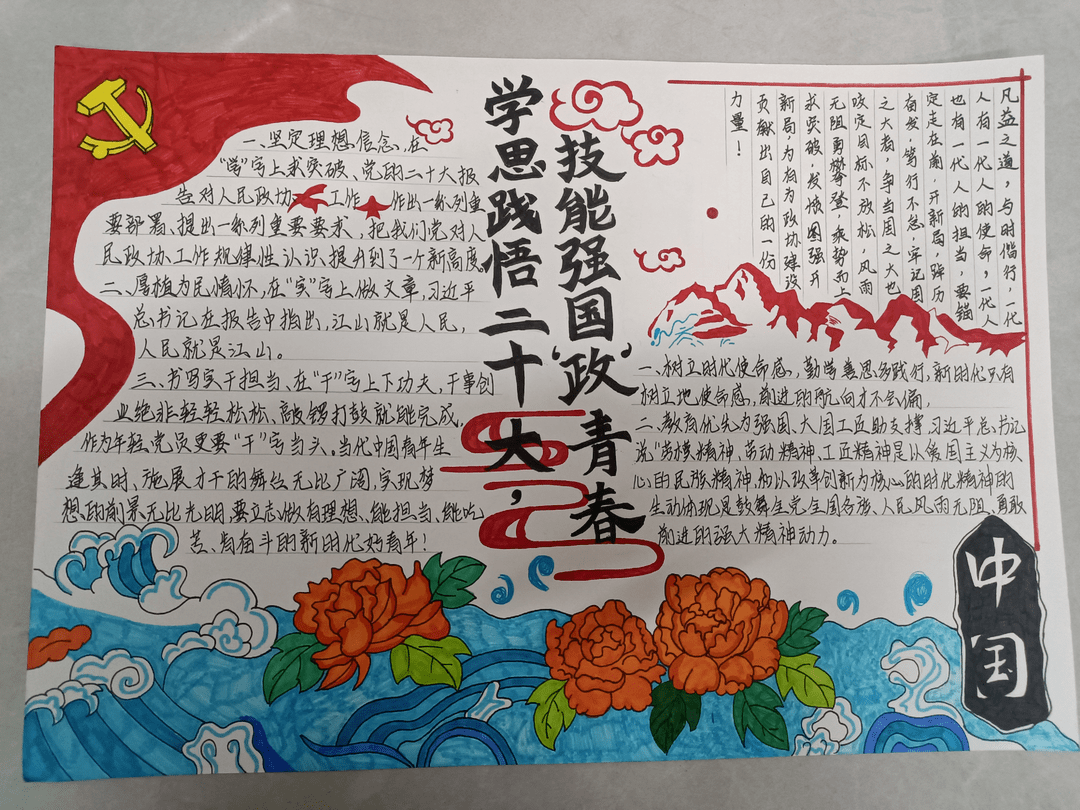 学思践悟二十大，
技能强国‘政’青春
一、坚定理想信念，在
“学”字上求突破、党的二十大报
告对人民政协工作作出一系列重
要部署、提出一系列重要要求，把我们党对人
民政协工作规律性认识提升到了一个新高度
二、厚植为民情怀，在“实”字上做文章，习近平
总书记在报告中指出，江山就是人民，
人民就是江山。
三、书写实干担当、在“干”字上下功夫，干事创
业绝非轻轻松松、敲锣打鼓就能完成，
作为年轻党员更要“干”字当头。当代中国青年生
逢其时、施展才干的舞台无比广阔，实现梦
想的前景无比光明，要立志做有理想、能担当、能吃
苦、肯奋斗的新时代好青年！
凡益之道，与时偕行，一代
人有一代人的使命，一代人
也有一代人的担当，要锚
定走在前，开新局，踔厉
奋发、笃行不怠，牢记国
之大者，争当国之大也
咬定目标不放松，风雨
无阻勇攀登，乘势而上
求突破，发愤图强开
新局，为有为政协建设
贡献出自己的一份
力量！
一、树立时代使命感，勤学善思多践行，新时代只有
树立地使命感，前进的航向才不会偏，
二、教育优先为强国、大国工匠助支撑，习近平总书记
说“劳模精神、劳动精神、工匠精神是以爱国主义为核
心的民族精神和以改革创新为核心的时代精神的
生动体现是鼓舞全党全国各族、人民风雨无阻、勇敢
前进的强大精神动力。
中国